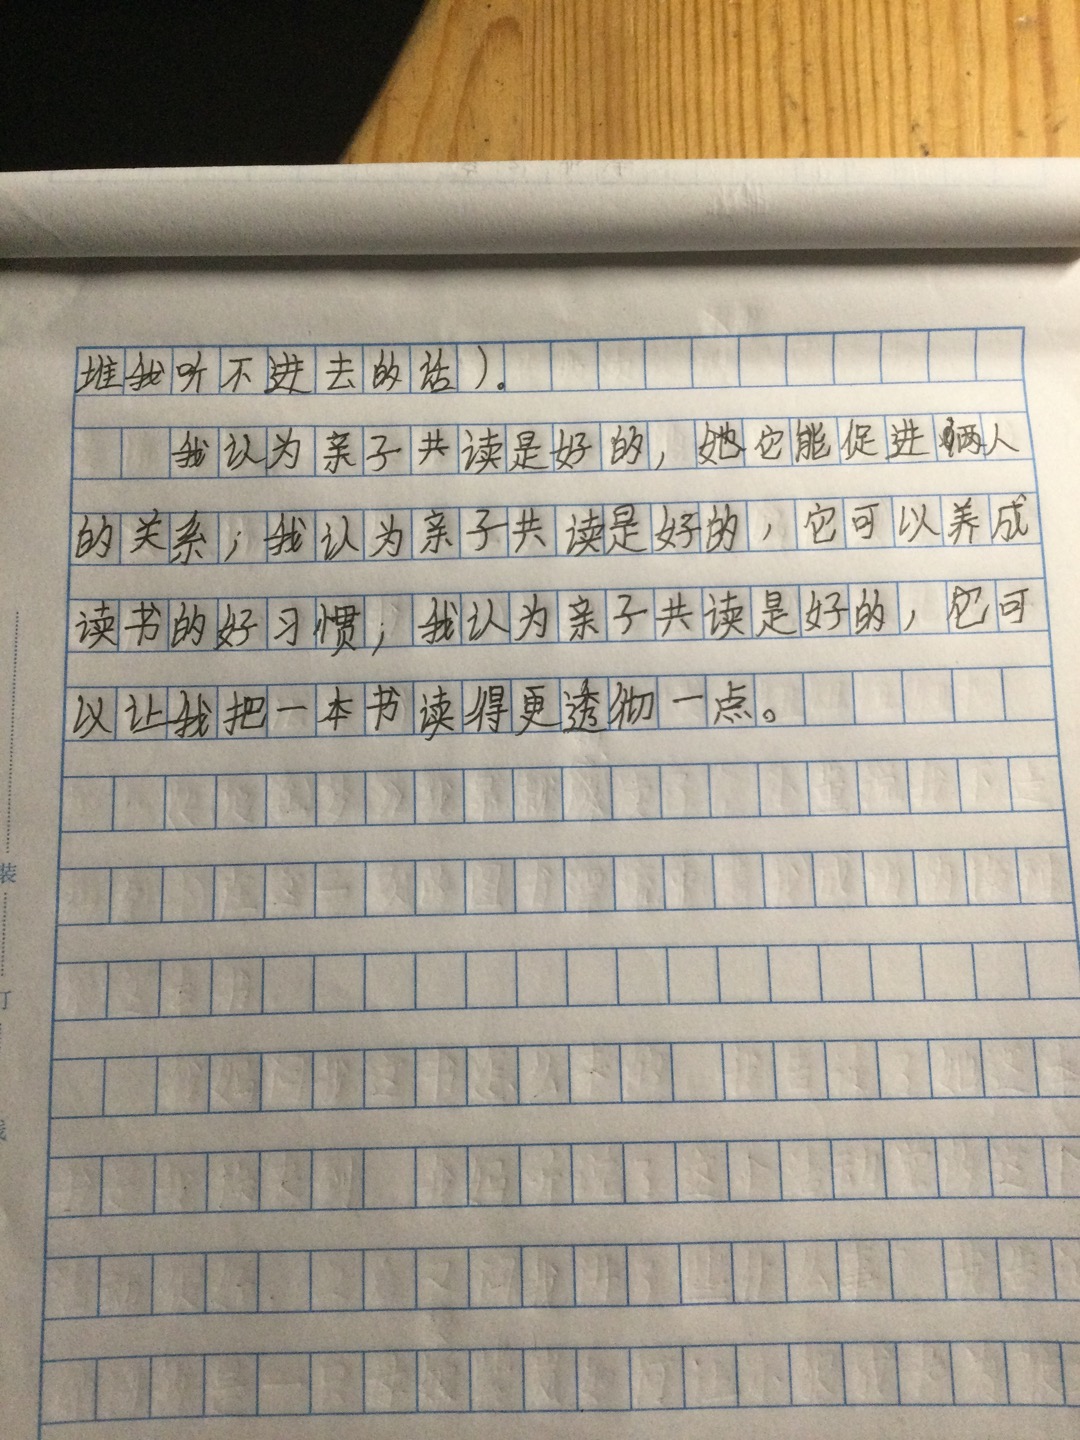 堆我听不进去的话）。
我认为亲子共读是好的，她它能促进俩人
的关系；我认为亲子共读是好的，它可以养成
读书的好习惯；我认为亲子共读是好的，它可
以让我把一本书读得更透彻一点。
装
订